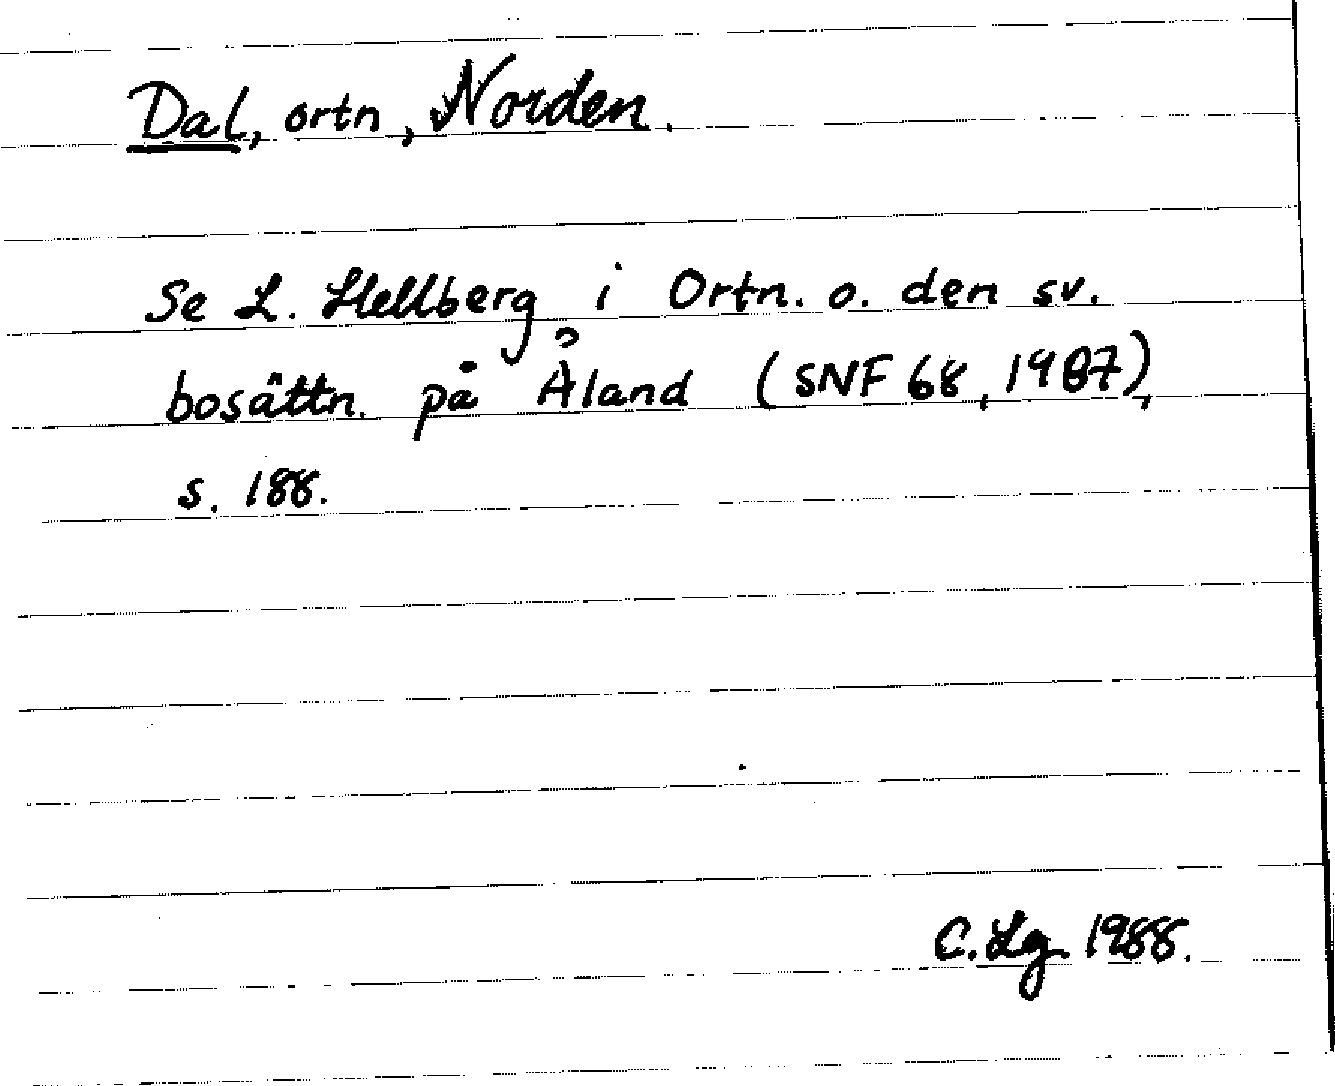 Dal, ortn, Norden.
Se L. Hellberg i Ortn. o. den sv.
bosättn. på Åland (SNF 68, 1987),
s. 188.
C. Lg 1988.